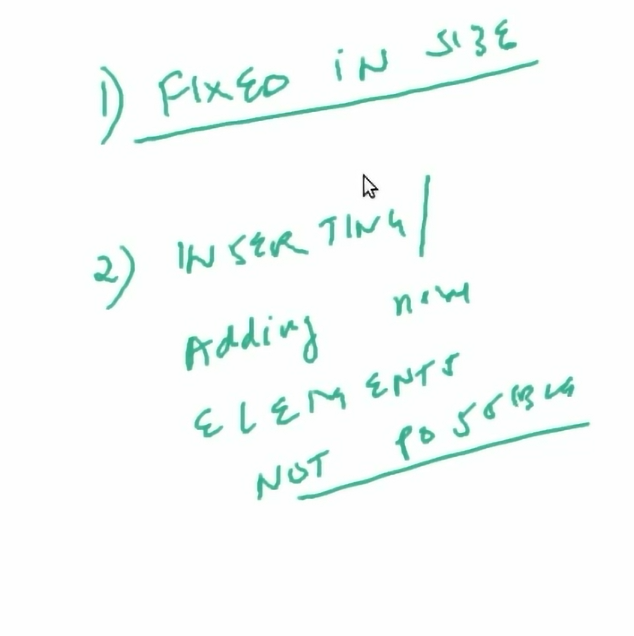 1) FIXED IN SIZE
2) INSERTING/
Adding new
ELEMENTS
NOT POSSIBLE